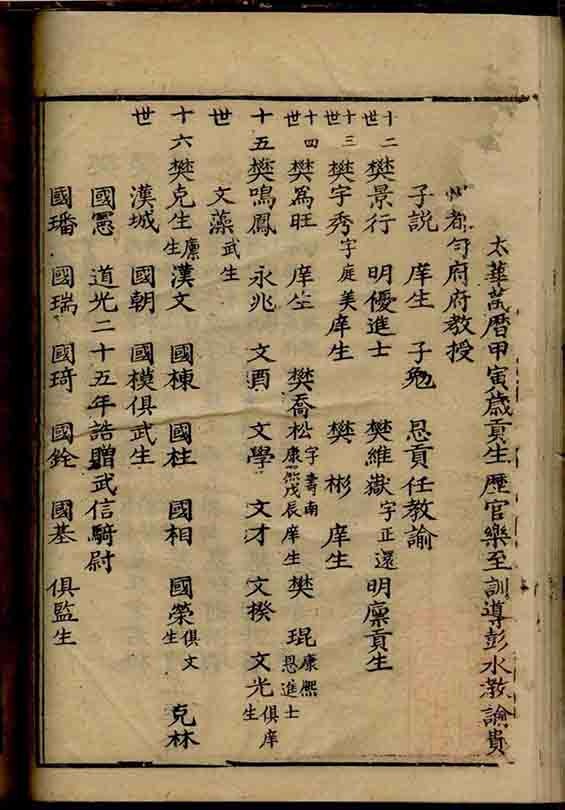 太華萬曆甲寅歲貢生歷官樂至訓導彭水教諭貴
州都勻府府教授
子說 庠生 子勉 恩貢任教諭
十二世 樊景行 明優進士 樊維嶽 字正還 明廩貢生
十三世 樊宇秀 字庭美 庠生 樊彬 庠生
十四世 樊為旺 庠生 樊喬松 字壽南 康熙戊辰庠生 樊琨 康熙恩進士
十五世 樊鳴鳳 永兆 文酒 文學 文才 文揆 文光 俱庠生
文藻 武生
十六世 樊克生 廩生 漢文 國棟 國柱 國相 國榮 俱文生 克林
漢城 國朝 國模 俱武生
國憲 道光二十五年誥贈武信騎尉
國璠 國瑞 國琦 國銓 國基 俱監生